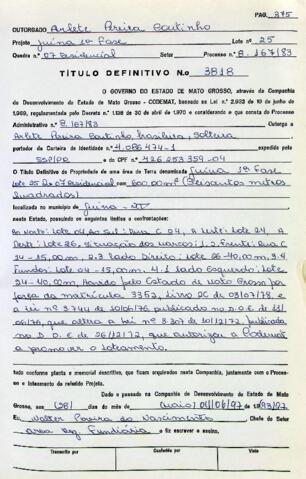 PAG. 375
OUTORGADO Arlete Pereira Coutinho
Projeto Juina 1ª Fase Lote nº 25
Quadra nº 07 Residencial Setor Processo nº B.167/83
TÍTULO DEFINITIVO N.o 3818
O GOVERNO DO ESTADO DE MATO GROSSO, através da Companhia
de Desenvolvimento do Estado de Mato Grosso - CODEMAT, baseado na Lei n.º 2.933 de 10 de junho de
1.969, regulamentada pelo Decreto n.º 1.138 de 30 de abril de 1.970 e considerando o que consta do Processo
Administrativo nº B.167/83 Outorga a
Arlete Pereira Coutinho, brasileira, Solteira
portador da Carteira de Identidade nº 4.086474-1 expedida pelo
SSP/PR e do CPF nº 426.253.359-04
O Título Definitivo de Propriedade de uma área de Terra denominada Juina 1ª Fase
Lote 25 Q-07 Residencial com 600,00m² (Seiscentos metros
Quadrados)
localizada no município de Juina - MT
neste Estado, possuindo os seguintes limites e confrontações:
Ao Norte: Lote 04, Ao Sul: Rua C 24, A Leste: Lote 24, A
Oeste: Lote 26, situação dos marcos: 1.2 Frente: Rua C
24 - 15,00m, 2.3 lado Direito: Lote 26 - 40,00m, 3.4
Fundos: Lote 04 - 15,00m. 4.1 lado Esquerdo: Lote
24 - 40,00m, havido pelo Estado de Mato Grosso por
força da matrícula 3352, Livro 2C de 03/07/78, e
a lei nº 3.744 de 10/06/76, publicado no D.O.E de 11/
06/76, que altera a lei nº 3.307 de 10/12/72, publicada
no D.O.E de 26/12/72, que autoriza a Codemat
a promover o loteamento.
tudo conforme planta e memorial descritivo, que ficam arquivados nesta Companhia, juntamente com o Processo
e loteamento do referido Projeto.
Dado e passado na Companhia de Desenvolvimento do Estado de Mato
Grosso, aos (28) dias do mês de (maio) 04/06/97 de 19 93/97
Eu Walter Pereira do Nascimento Chefe do Setor
area Reg. Fundiária o fiz escrever e assino.
Transcrito por Conferido por Visto